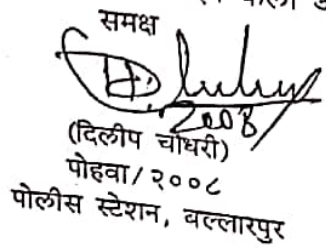 समक्ष
2008
(दिलीप चौधरी)
पोहवा/२००८
पोलीस स्टेशन, बल्लारपुर